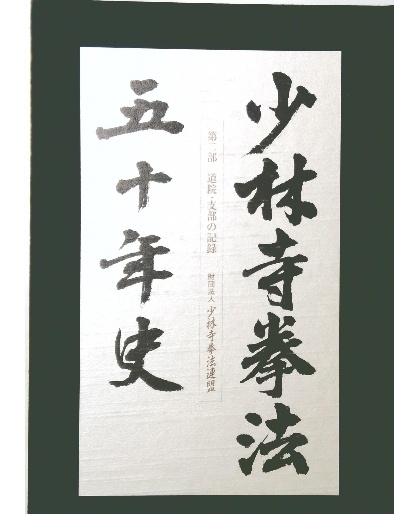 少林寺拳法
第二部 道院・支部の記録
財団法人 少林寺拳法連盟
五十年史